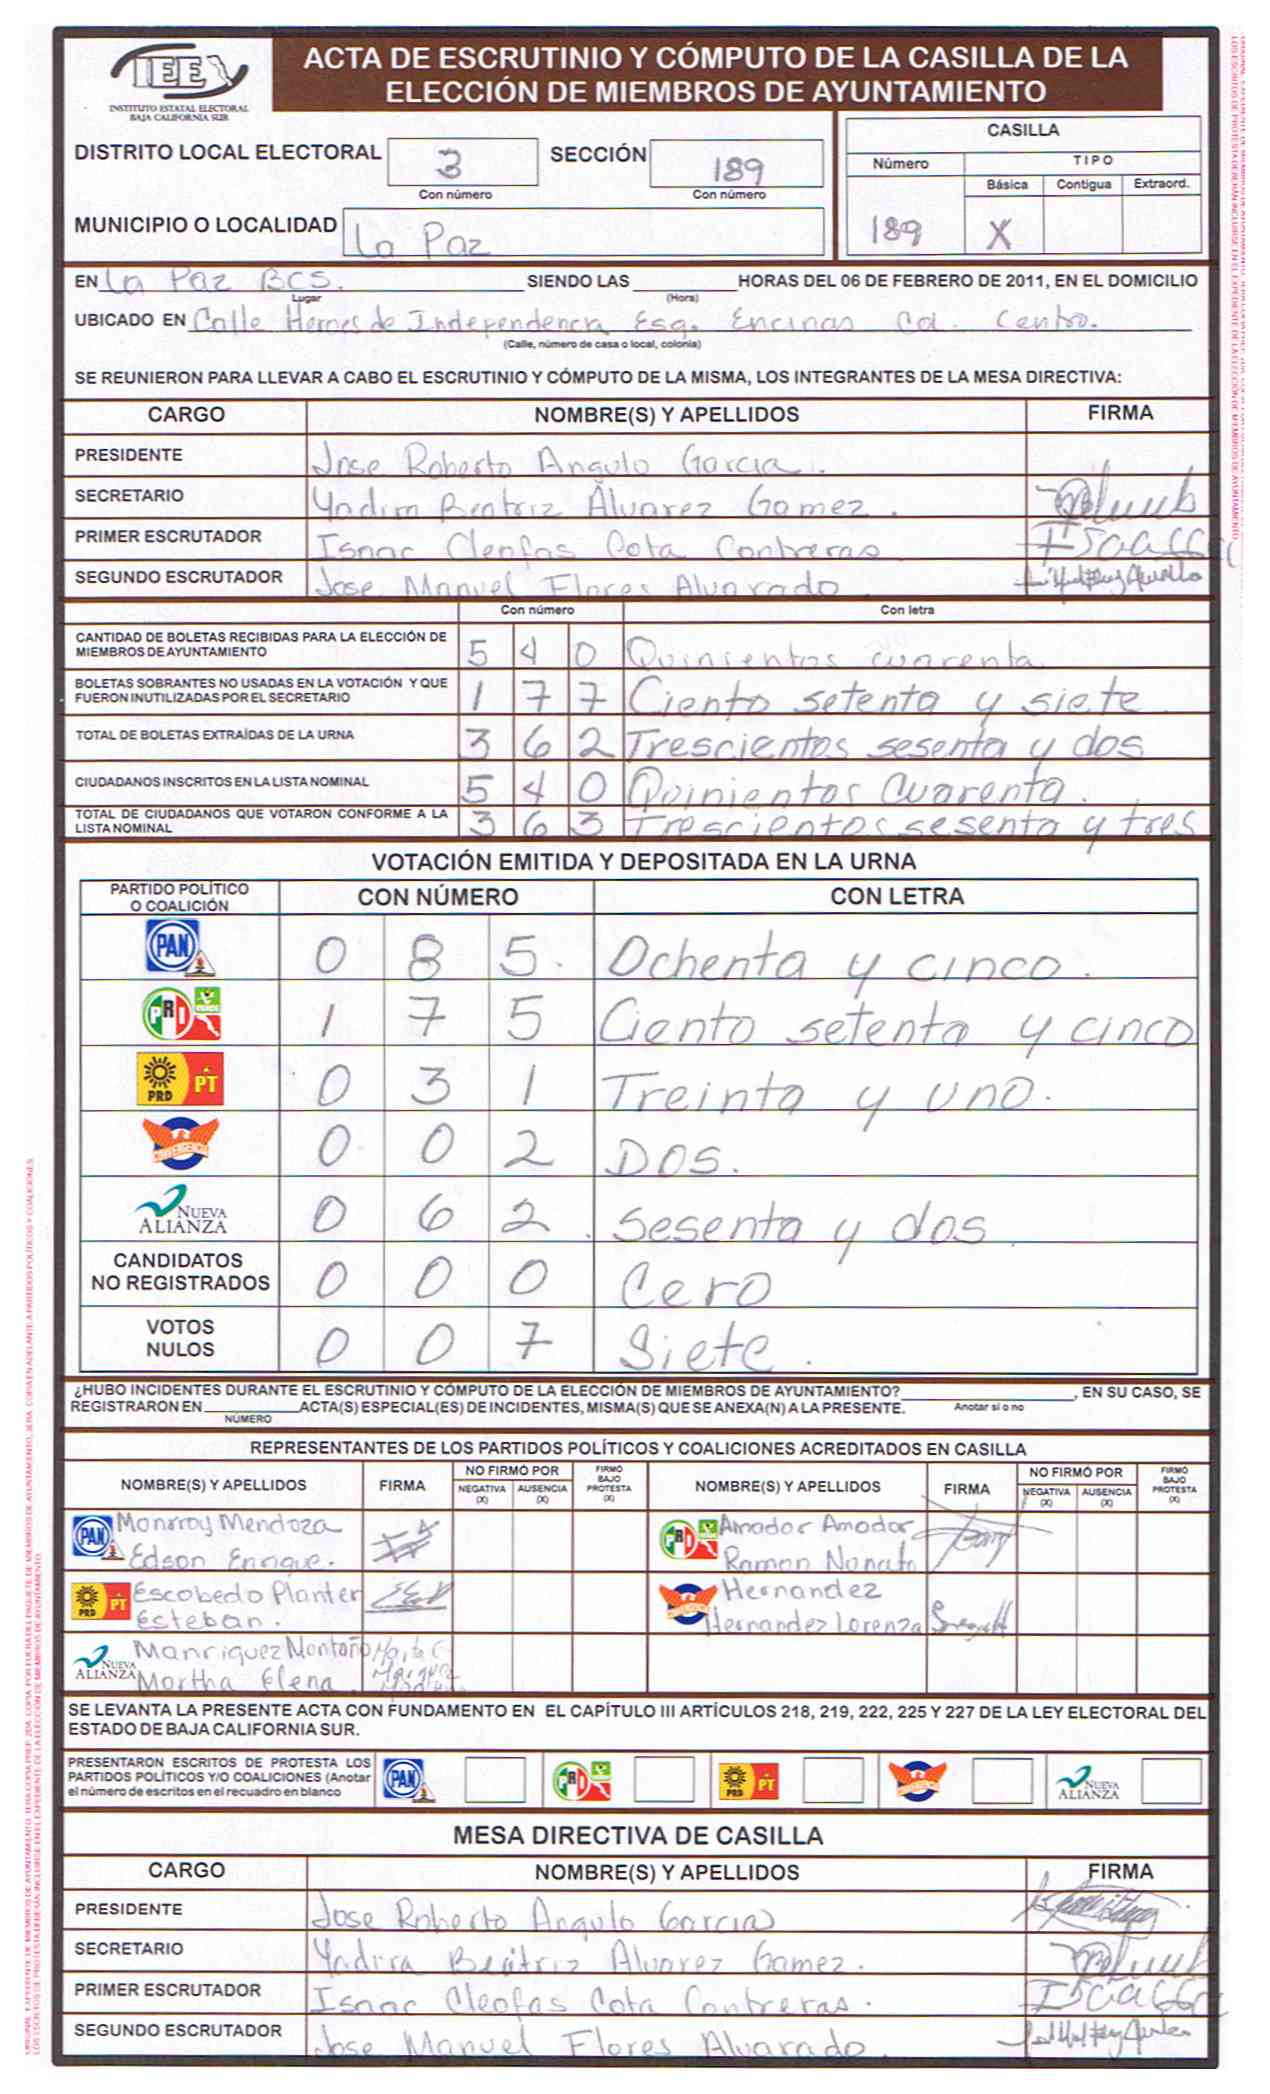 IEEX
INSTITUTO ESTATAL ELECTORAL
BAJA CALIFORNIA SUR
ACTA DE ESCRUTINIO Y CÓMPUTO DE LA CASILLA DE LA
ELECCIÓN DE MIEMBROS DE AYUNTAMIENTO
DISTRITO LOCAL ELECTORAL 3 SECCIÓN 189
Con número Con número
MUNICIPIO O LOCALIDAD La Paz
CASILLA
Número TIPO
Básica Contigua Extraord.
189 X
EN La Paz BCS. SIENDO LAS HORAS DEL 06 DE FEBRERO DE 2011, EN EL DOMICILIO
Lugar (Hora)
UBICADO EN Calle Heroes de Independencia Esq. Encinas Col. Centro.
(Calle, número de casa o local, colonia)
SE REUNIERON PARA LLEVAR A CABO EL ESCRUTINIO Y CÓMPUTO DE LA MISMA, LOS INTEGRANTES DE LA MESA DIRECTIVA:
CARGO NOMBRE(S) Y APELLIDOS FIRMA
PRESIDENTE Jose Roberto Angulo Garcia.
SECRETARIO Yadira Beatriz Álvarez Gamez.
PRIMER ESCRUTADOR Isaac Cleofas Cota Contreras
SEGUNDO ESCRUTADOR Jose Manuel Flores Alvarado
Con número Con letra
CANTIDAD DE BOLETAS RECIBIDAS PARA LA ELECCIÓN DE
MIEMBROS DE AYUNTAMIENTO 5 4 0 Quinientos cuarenta
BOLETAS SOBRANTES NO USADAS EN LA VOTACIÓN Y QUE
FUERON INUTILIZADAS POR EL SECRETARIO 1 7 7 Ciento setenta y siete
TOTAL DE BOLETAS EXTRAÍDAS DE LA URNA 3 6 2 Trescientos sesenta y dos
CIUDADANOS INSCRITOS EN LA LISTA NOMINAL 5 4 0 Quinientos Cuarenta.
TOTAL DE CIUDADANOS QUE VOTARON CONFORME A LA
LISTA NOMINAL 3 6 3 Trescientos sesenta y tres
VOTACIÓN EMITIDA Y DEPOSITADA EN LA URNA
PARTIDO POLÍTICO
O COALICIÓN CON NÚMERO CON LETRA
PAN 0 8 5. Ochenta y cinco.
PRI VERDE 1 7 5 Ciento setenta y cinco
PRD PT 0 3 1 Treinta y uno.
CONVERGENCIA 0 0 2 Dos.
NUEVA ALIANZA 0 6 2. Sesenta y dos.
CANDIDATOS
NO REGISTRADOS 0 0 0 Cero
VOTOS
NULOS 0 0 7 Siete.
¿HUBO INCIDENTES DURANTE EL ESCRUTINIO Y CÓMPUTO DE LA ELECCIÓN DE MIEMBROS DE AYUNTAMIENTO? , EN SU CASO, SE
REGISTRARON EN ACTA(S) ESPECIAL(ES) DE INCIDENTES, MISMA(S) QUE SE ANEXA(N) A LA PRESENTE. Anotar sí o no
NÚMERO
REPRESENTANTES DE LOS PARTIDOS POLÍTICOS Y COALICIONES ACREDITADOS EN CASILLA
NOMBRE(S) Y APELLIDOS FIRMA NO FIRMÓ POR NEGATIVA (X) AUSENCIA (X) FIRMÓ BAJO PROTESTA (X) NOMBRE(S) Y APELLIDOS FIRMA NO FIRMÓ POR NEGATIVA (X) AUSENCIA (X) FIRMÓ BAJO PROTESTA (X)
PAN Monrroy Mendoza
Edson Enrique.
PRI Amador Amador
Ramon Nonato
PRD PT Escobedo Planter
Esteban.
CONVERGENCIA Hernandez
Hernandez Lorenza
NUEVA ALIANZA Manriquez Montaño
Martha Elena.
SE LEVANTA LA PRESENTE ACTA CON FUNDAMENTO EN EL CAPÍTULO III ARTÍCULOS 218, 219, 222, 225 Y 227 DE LA LEY ELECTORAL DEL
ESTADO DE BAJA CALIFORNIA SUR.
PRESENTARON ESCRITOS DE PROTESTA LOS
PARTIDOS POLÍTICOS Y/O COALICIONES (Anotar
el número de escritos en el recuadro en blanco
PAN PRI PRD PT CONVERGENCIA NUEVA ALIANZA
MESA DIRECTIVA DE CASILLA
CARGO NOMBRE(S) Y APELLIDOS FIRMA
PRESIDENTE Jose Roberto Angulo Garcia
SECRETARIO Yadira Beátriz Alvarez Gamez.
PRIMER ESCRUTADOR Isaac Cleofas Cota Contreras.
SEGUNDO ESCRUTADOR Jose Manuel Flores Alvarado.